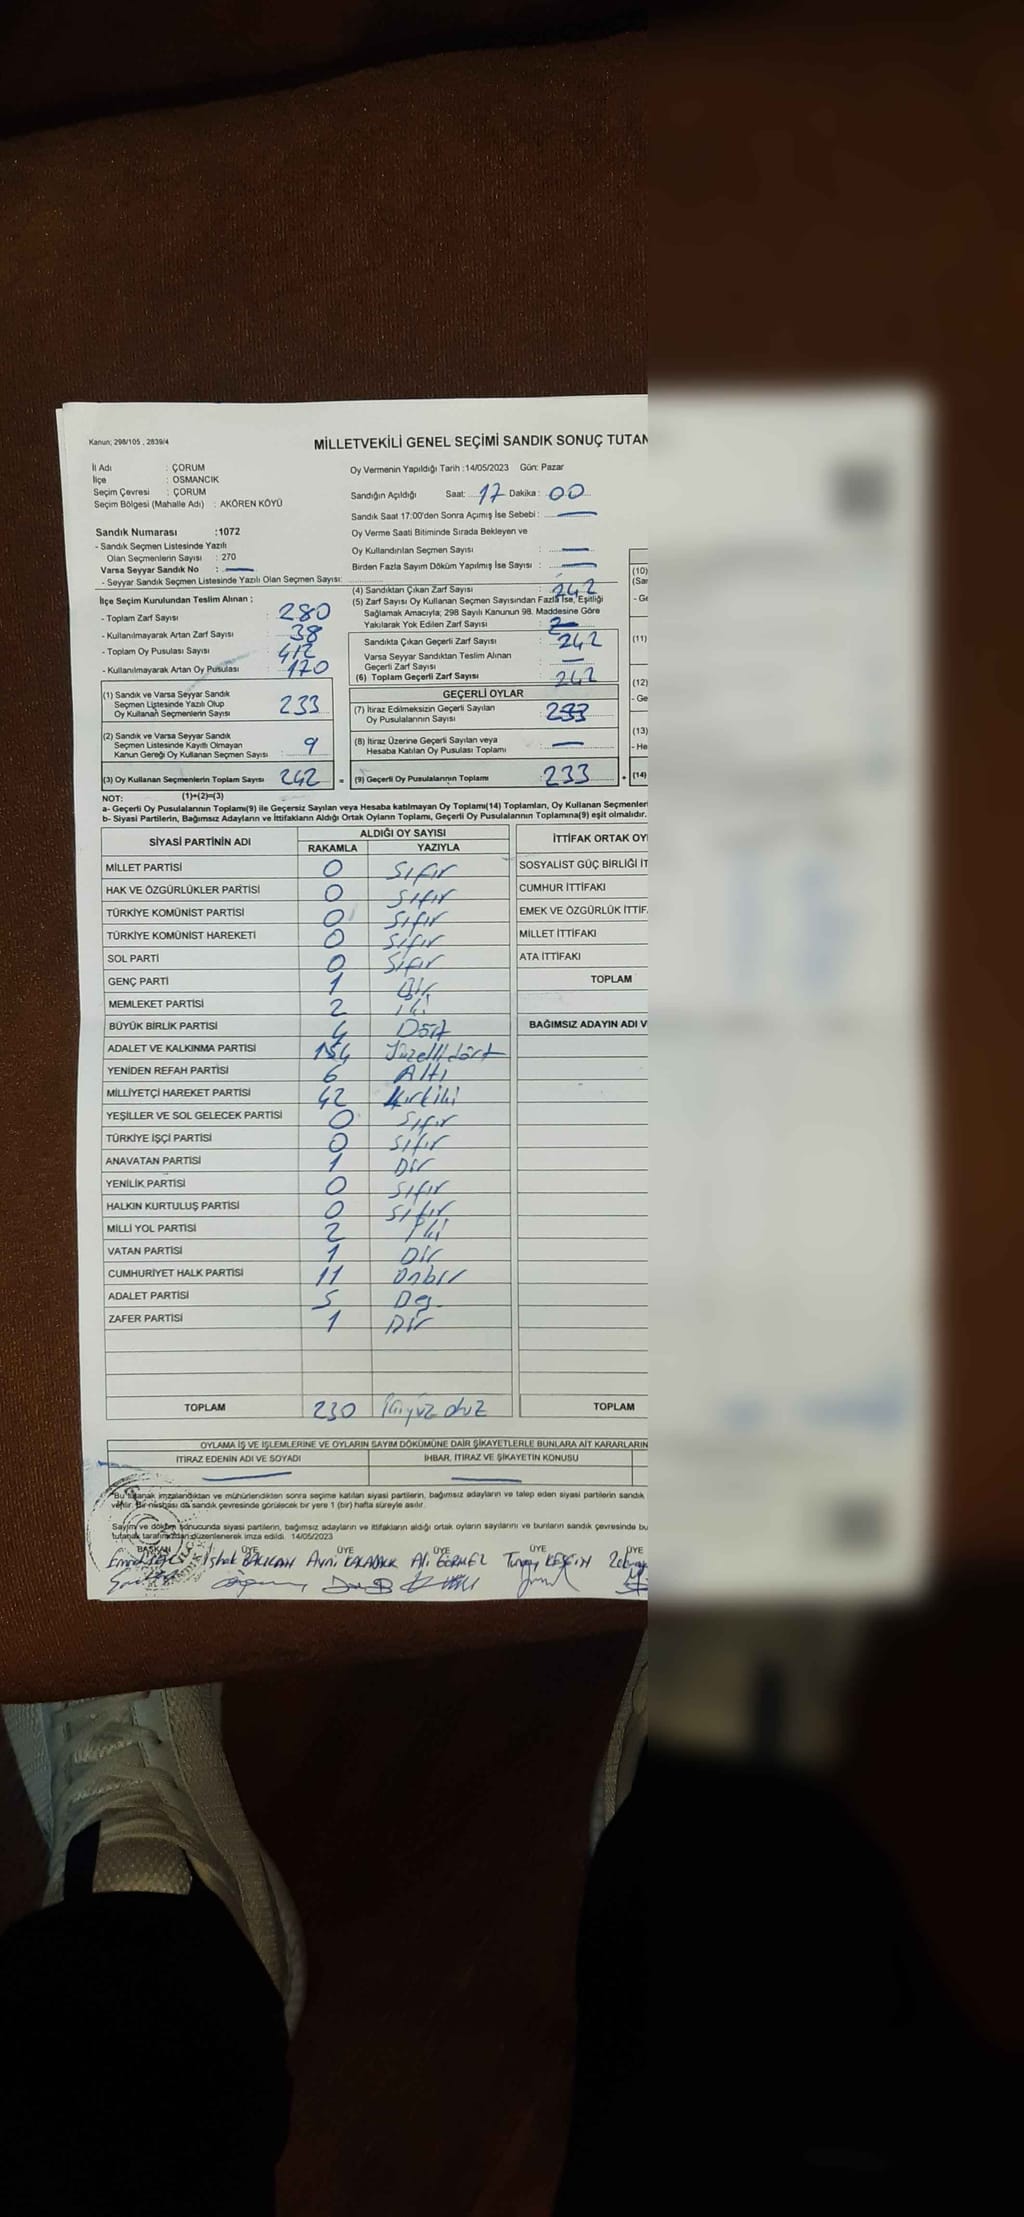 Kanun; 298/105 , 2839/4
MİLLETVEKİLİ GENEL SEÇİMİ SANDIK SONUÇ TUTAN
İl Adı : ÇORUM
İlçe : OSMANCIK
Seçim Çevresi : ÇORUM
Seçim Bölgesi (Mahalle Adı) : AKÖREN KÖYÜ
Oy Vermenin Yapıldığı Tarih :14/05/2023 Gün: Pazar
Sandığın Açıldığı Saat: 17 Dakika: 00
Sandık Saat 17:00'den Sonra Açmış İse Sebebi : —
Sandık Numarası :1072
- Sandık Seçmen Listesinde Yazılı
Olan Seçmenlerin Sayısı : 270
Varsa Seyyar Sandık No : —
- Seyyar Sandık Seçmen Listesinde Yazılı Olan Seçmen Sayısı:
Oy Verme Saati Bitiminde Sırada Bekleyen ve
Oy Kullandırılan Seçmen Sayısı : —
Birden Fazla Sayım Döküm Yapılmış İse Sayısı : —
İlçe Seçim Kurulundan Teslim Alınan ;
- Toplam Zarf Sayısı : 280
- Kullanılmayarak Artan Zarf Sayısı : 38
- Toplam Oy Pusulası Sayısı : 412
- Kullanılmayarak Artan Oy Pusulası : 170
(4) Sandıktan Çıkan Zarf Sayısı : 242
(5) Zarf Sayısı Oy Kullanan Seçmen Sayısından Fazla İse, Eşitliği
Sağlamak Amacıyla; 298 Sayılı Kanunun 98. Maddesine Göre
Yakılarak Yok Edilen Zarf Sayısı :
Sandıkta Çıkan Geçerli Zarf Sayısı : 242
Varsa Seyyar Sandıktan Teslim Alınan
Geçerli Zarf Sayısı : —
(6) Toplam Geçerli Zarf Sayısı : 242
(1) Sandık ve Varsa Seyyar Sandık
Seçmen Listesinde Yazılı Olup
Oy Kullanan Seçmenlerin Sayısı : 233
(2) Sandık ve Varsa Seyyar Sandık
Seçmen Listesinde Kayıtlı Olmayan
Kanun Gereği Oy Kullanan Seçmen Sayısı : 9
(3) Oy Kullanan Seçmenlerin Toplam Sayısı : 242
GEÇERLİ OYLAR
(7) İtiraz Edilmeksizin Geçerli Sayılan
Oy Pusulalarının Sayısı : 233
(8) İtiraz Üzerine Geçerli Sayılan veya
Hesaba Katılan Oy Pusulası Toplamı : —
= (9) Geçerli Oy Pusulalarının Toplamı : 233 +
(10)
(Sar
- Ge
(11)
(12)
- Ge
(13)
- He
(14)
NOT: (1)+(2)=(3)
a- Geçerli Oy Pusulalarının Toplamı(9) ile Geçersiz Sayılan veya Hesaba katılmayan Oy Toplamı(14) Toplamları, Oy Kullanan Seçmenler
b- Siyasi Partilerin, Bağımsız Adayların ve İttifakların Aldığı Ortak Oyların Toplamı, Geçerli Oy Pusulalarının Toplamına(9) eşit olmalıdır.
SİYASİ PARTİNİN ADI ALDIĞI OY SAYISI
RAKAMLA YAZIYLA
MİLLET PARTİSİ 0 Sıfır
HAK VE ÖZGÜRLÜKLER PARTİSİ 0 Sıfır
TÜRKİYE KOMÜNİST PARTİSİ 0 Sıfır
TÜRKİYE KOMÜNİST HAREKETİ 0 Sıfır
SOL PARTİ 0 Sıfır
GENÇ PARTİ 1 Bir
MEMLEKET PARTİSİ 2 İki
BÜYÜK BİRLİK PARTİSİ 4 Dört
ADALET VE KALKINMA PARTİSİ 154 Yüzellidört
YENİDEN REFAH PARTİSİ 6 Altı
MİLLİYETÇİ HAREKET PARTİSİ 42 Kırkiki
YEŞİLLER VE SOL GELECEK PARTİSİ 0 Sıfır
TÜRKİYE İŞÇİ PARTİSİ 0 Sıfır
ANAVATAN PARTİSİ 1 Bir
YENİLİK PARTİSİ 0 Sıfır
HALKIN KURTULUŞ PARTİSİ 0 Sıfır
MİLLİ YOL PARTİSİ 2 İki
VATAN PARTİSİ 1 Bir
CUMHURİYET HALK PARTİSİ 11 Onbir
ADALET PARTİSİ 5 Beş
ZAFER PARTİSİ 1 Bir
TOPLAM 230 İkiyüz otuz
İTTİFAK ORTAK OYL
SOSYALİST GÜÇ BİRLİĞİ İT
CUMHUR İTTİFAKI
EMEK VE ÖZGÜRLÜK İTTİF
MİLLET İTTİFAKI
ATA İTTİFAKI
TOPLAM
BAĞIMSIZ ADAYIN ADI V
TOPLAM
OYLAMA İŞ VE İŞLEMLERİNE VE OYLARIN SAYIM DÖKÜMÜNE DAİR ŞİKAYETLERLE BUNLARA AİT KARARLARIN
İTİRAZ EDENİN ADI VE SOYADI İHBAR, İTİRAZ VE ŞİKAYETİN KONUSU
Bu tutanak imzalandıktan ve mühürlendikten sonra seçime katılan siyasi partilerin, bağımsız adayların ve talep eden siyasi partilerin sandık
verilir. Bir nüshası da sandık çevresinde görülecek bir yere 1 (bir) hafta süreyle asılır.
Sayım ve döküm sonucunda siyasi partilerin, bağımsız adayların ve ittifakların aldığı ortak oyların sayılarını ve bunların sandık çevresinde bu
tutanak tarafımızdan düzenlenerek imza edildi. 14/05/2023
BAŞKAN ÜYE ÜYE ÜYE ÜYE ÜYE
İshak Avni Ali GÖRMEL KESKİN